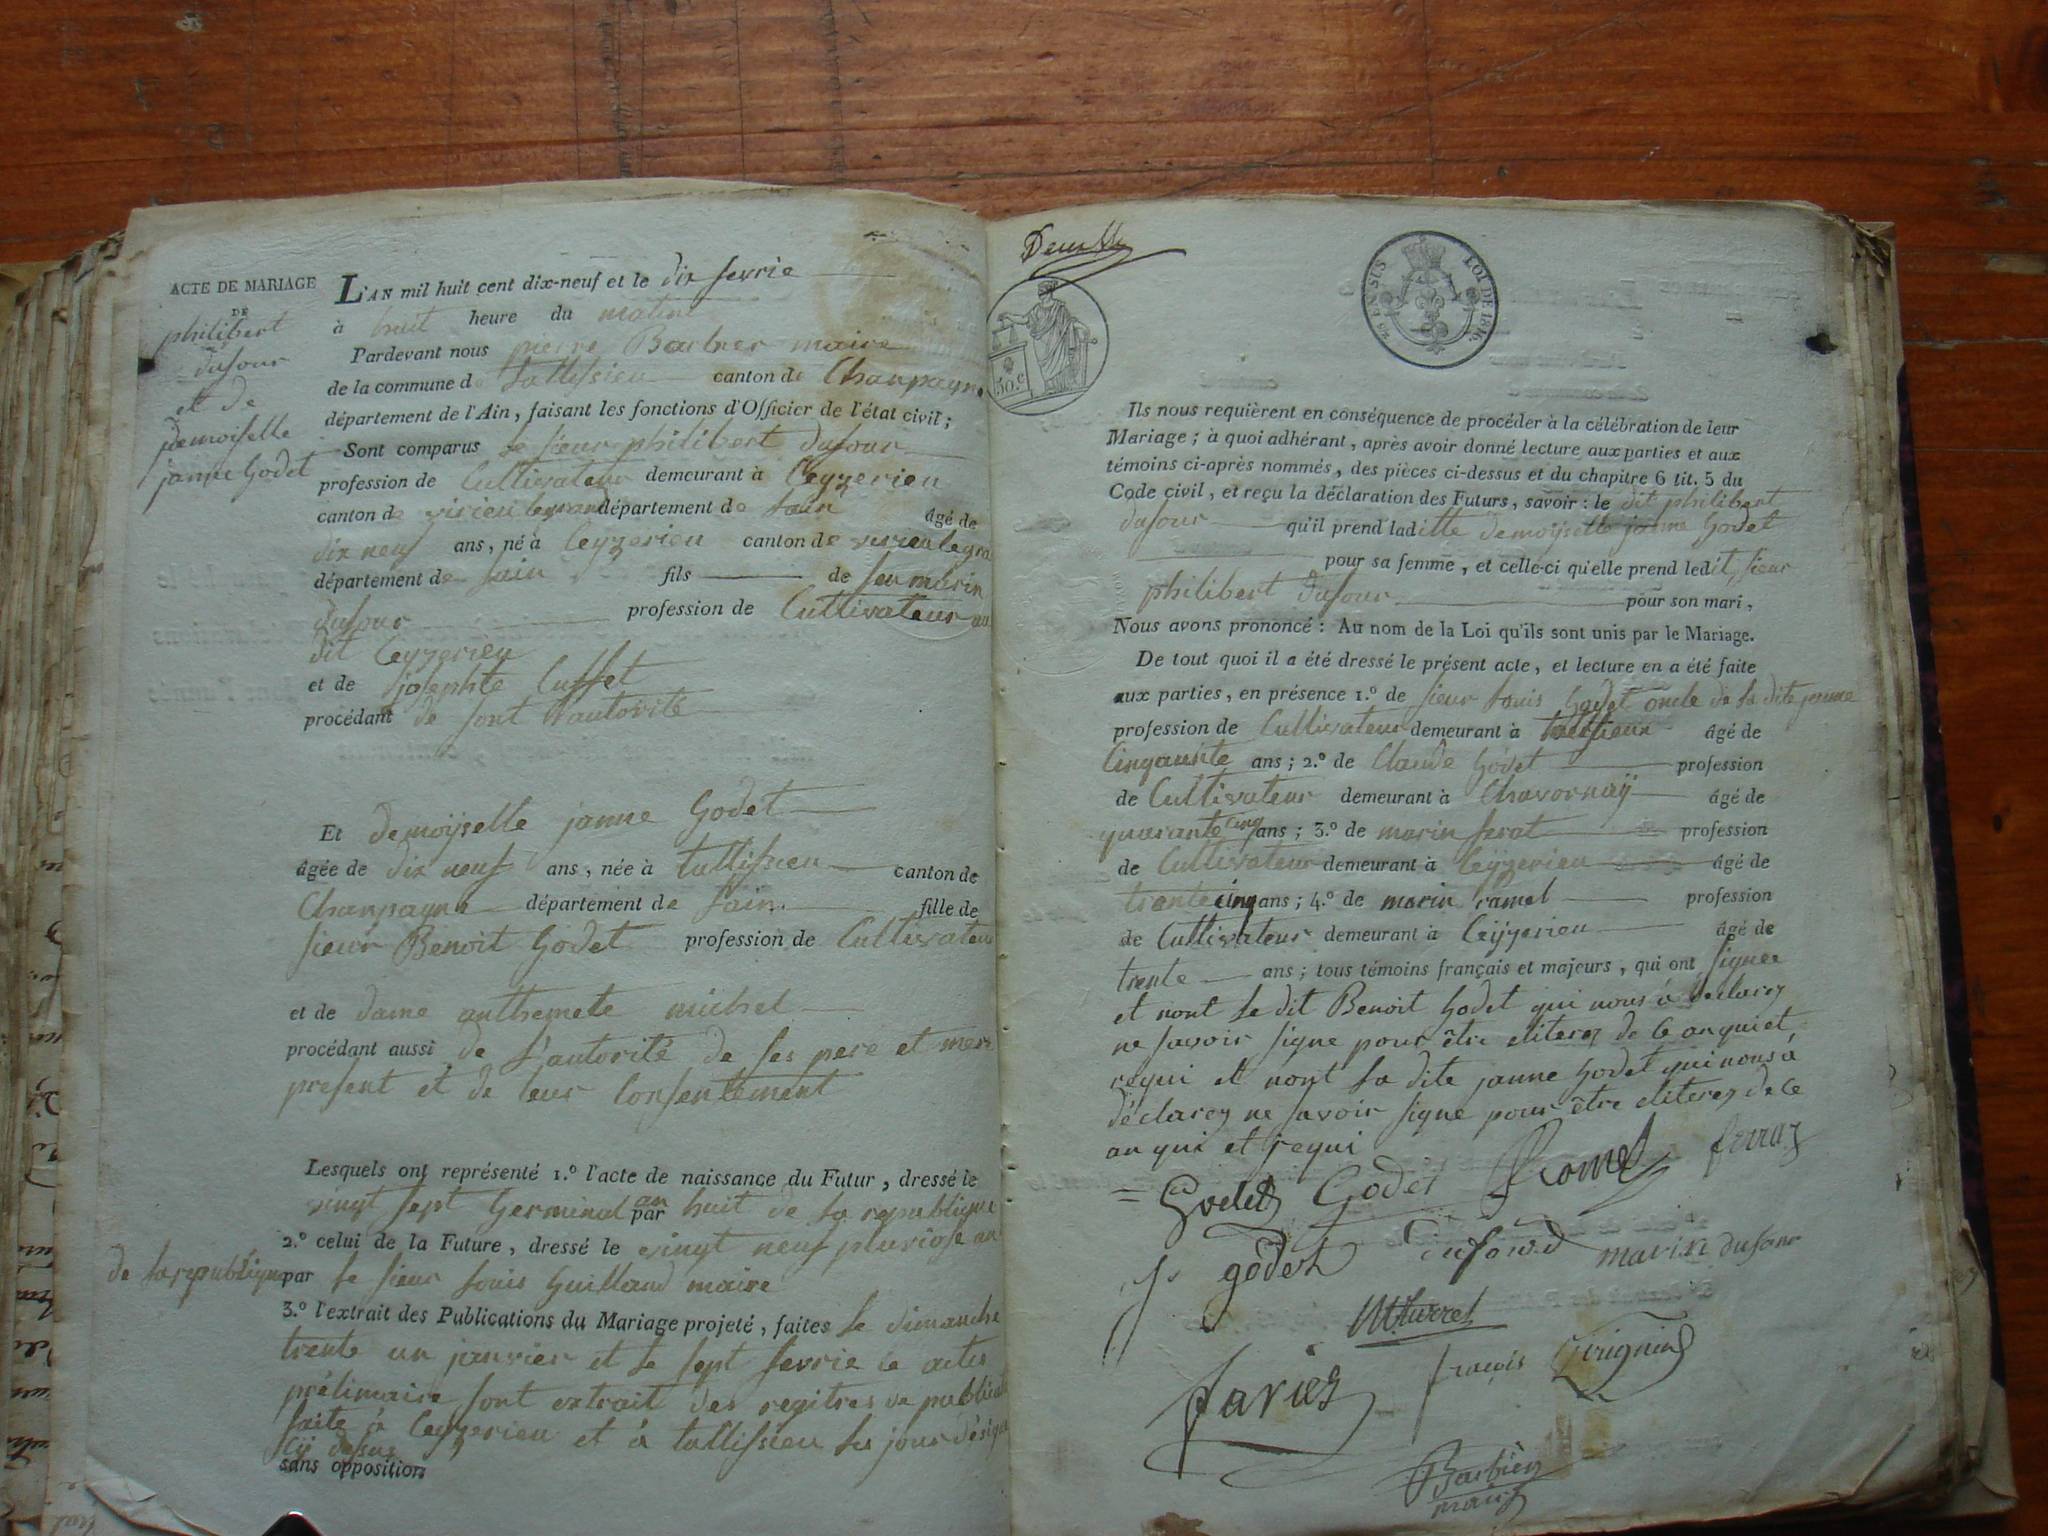 ACTE DE MARIAGE
DE
philibert
dufour
et de
demoiselle
janne Godet
L'AN mil huit cent dix-neuf et le dix fevrie
à huit heure du matin
Pardevant nous pierre Barbier maire
de la commune de tallissieu canton de Chanpagne
département de l'Ain, faisant les fonctions d'Officier de l'état civil;
Sont comparus le sieur philibert dufour
profession de Cultivateur demeurant à Ceyzerieu
canton de virieu legrand département de lain âgé de
dix neuf ans, né à Ceyzerieu canton de virieu legra
département de lain fils de feu marin
dufour profession de Cultivateur au
dit Ceyzerieu
et de josephte Cuffet
procédant de sont autorité
Et demoyselle janne Godet
âgée de dix neuf ans, née à tallissieu canton de
Chanpagne département de lain fille de
sieur Benoit Godet profession de Cultivateur
et de dame anthemete michel
procédant aussi de l'autorité de ses pere et mere
present et de leur Consentement
Lesquels ont représenté 1.º l'acte de naissance du Futur, dressé le
vingt sept Germinal an par huit de la republique
2.º celui de la Future, dressé le vingt neuf pluviose an
de la republique par le sieur louis Guilland maire
3.º l'extrait des Publications du Mariage projeté, faites le dimanche
trente un janvier et le sept fevrie le actes
prélimaire sont extrait des regitres de publicat
faite à Ceyzerieu et à tallissieu les jour désigne
Cy desus
sans opposition
50.c
EN SUS
LOI DE 1816
Ils nous requièrent en conséquence de procéder à la célébration de leur
Mariage; à quoi adhérant, après avoir donné lecture aux parties et aux
témoins ci-après nommés, des pièces ci-dessus et du chapitre 6 tit. 5 du
Code civil, et reçu la déclaration des Futurs, savoir: le dit philibert
dufour qu'il prend laditte demoyselle janne Godet
pour sa femme, et celle-ci qu'elle prend ledit sieur
philibert dufour pour son mari,
Nous avons prononcé: Au nom de la Loi qu'ils sont unis par le Mariage.
De tout quoi il a été dressé le présent acte, et lecture en a été faite
aux parties, en présence 1.º de sieur louis Godet oncle de la dite janne
profession de Cultivateur demeurant à tallissieu âgé de
Cinquante ans; 2.º de Claude Godet profession
de Cultivateur demeurant à Chavornay âgé de
quarante cinq ans; 3.º de marin ferat profession
de Cultivateur demeurant à Ceyzerieu âgé de
trante cinq ans; 4.º de marin ramel profession
de Cultivateur demeurant à Ceyzerieu âgé de
trente ans; tous témoins français et majeurs, qui ont signee
et nont le dit Benoit Godet qui nous à declarez
ne savoir signe pour être eliterez de Ce anqui et
requi et nont la dite janne Godet qui nous à
déclarez ne savoir signe pour être eliterez de Ce
anqui et requi
Godet Godet Romel ferraz
godet dufourd marin dufour
françois
Barbier
maire